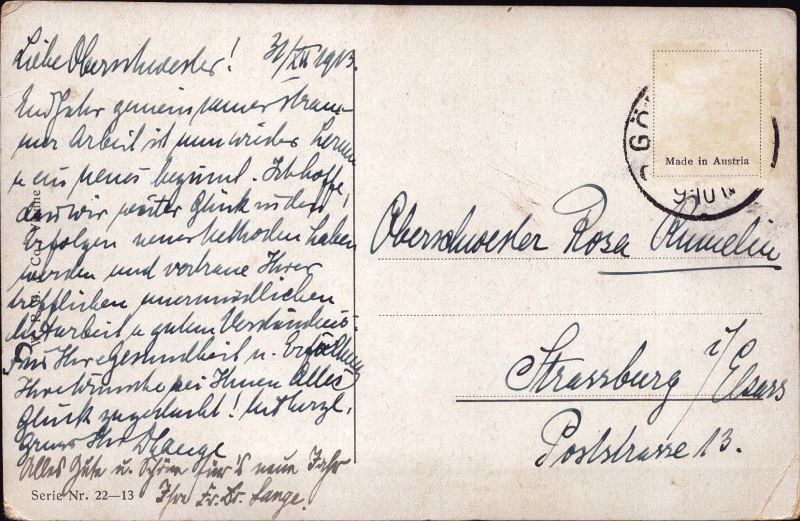 Liebe Oberschwester! 31/XII 1913.
Ein Jahr gemeinsamer stram-
mer Arbeit ist nun wieder herum
u. ein neues beginnt. Ich hoffe,
dass wir weiter Glück in den
Erfolgen neuer Methoden haben
werden und vertraue Ihrer
trefflichen unermüdlichen
Mitarbeit u. gutem Verständnis.
Für Ihre Gesundheit u. Erfüllung
Ihrer Wünsche sei Ihnen Alles
Glück zugedacht! Mit herzl.
Gruss Ihr Lange
Alles Gute u. Schöne für's neue Jahr
Ihre Fr. Dr. Lange.
Serie Nr. 22—13
Made in Austria
GÖ
9-10
Oberschwester Rosa
Strassburg i/Elsass
Poststrasse 13.